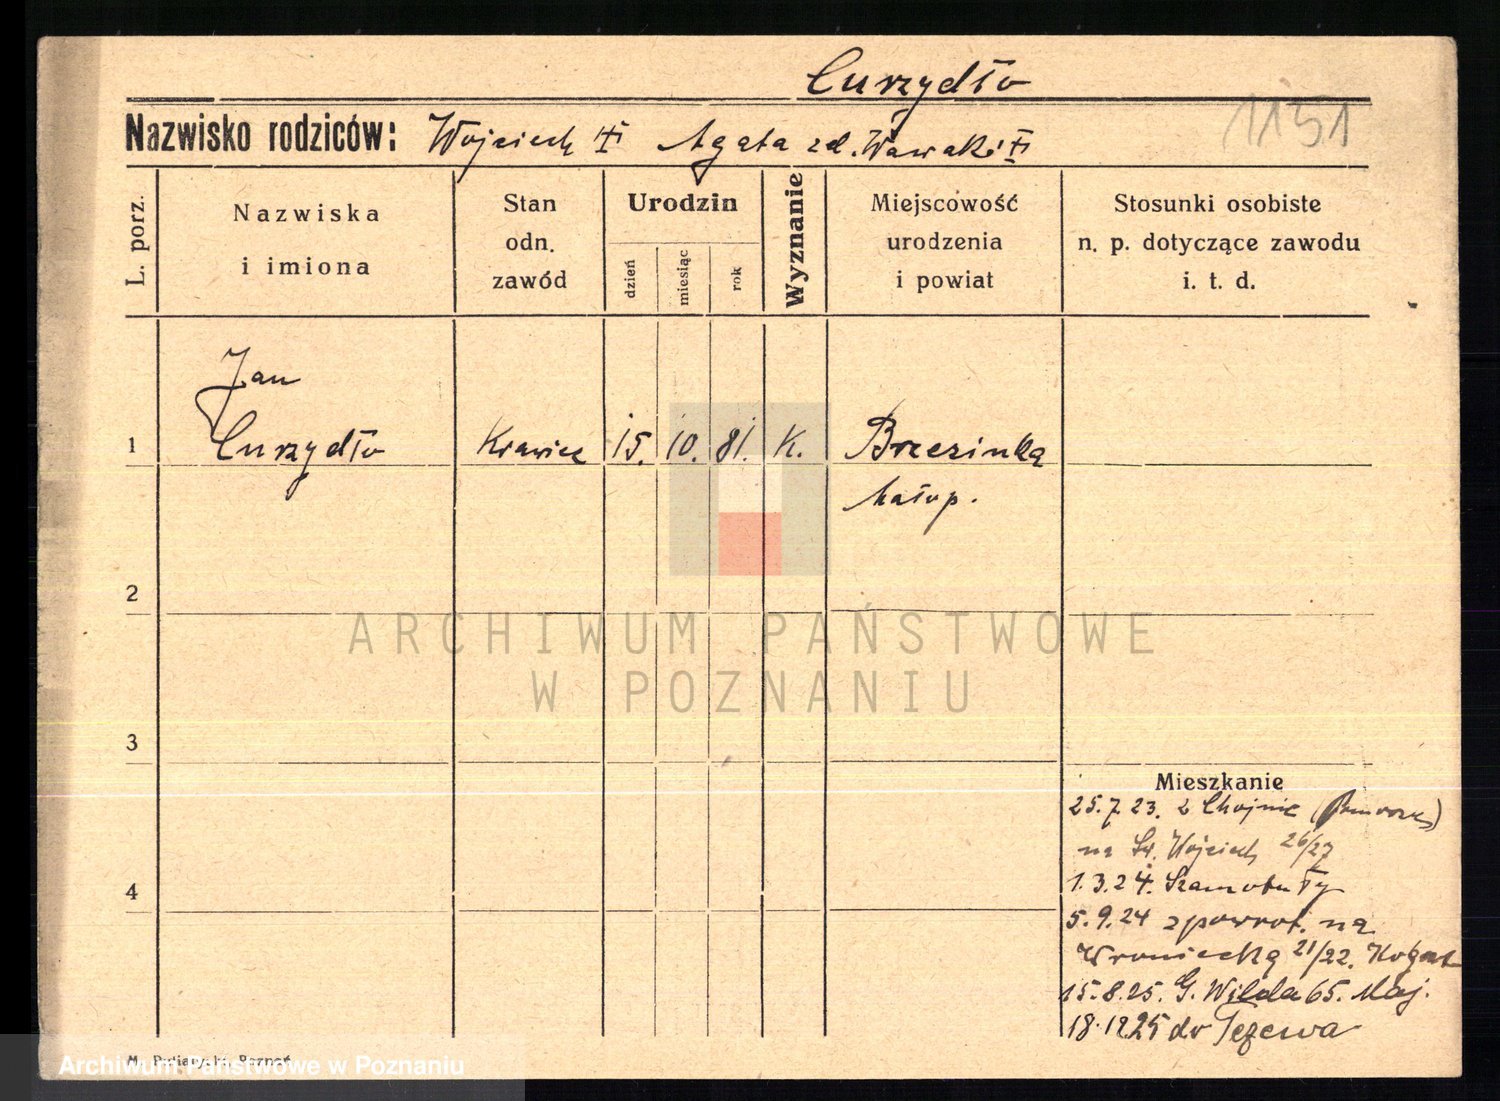 Curzydło
1151
Nazwisko rodziców: Wojciech Agata zd. Wawak
L. porz.
Nazwiska
i imiona
Stan
odn.
zawód
Urodzin
dzień
miesiąc
rok
Wyznanie
Miejscowość
urodzenia
i powiat
Stosunki osobiste
n. p. dotyczące zawodu
i. t. d.
Jan
1 Curzydło Krawiec 15. 10. 81. K. Brzezinka
Małop.
2
ARCHIWUM PAŃSTWOWE
W POZNANIU
3
Mieszkanie
25.7.23. z Chojnic
na Św. Wojciech 26/27
4
1.3.24. Szamotuły
5.9.24 zpowrot. na
Wroniecką 21/22.
15.8.25. G. Wilda 65. Maj.
18.12.25 do Tczewa
Archiwum Państwowe w Poznaniu